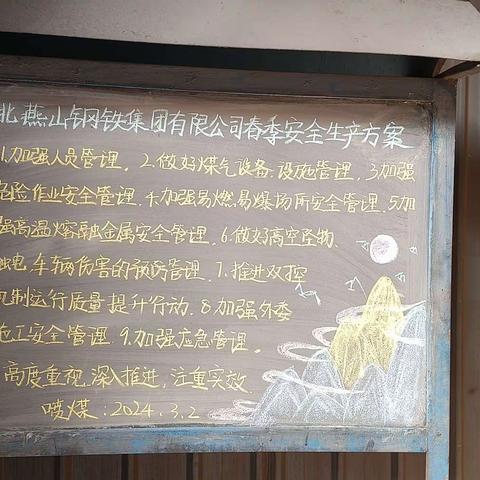 北燕山钢铁集团有限公司春季安全生产方案
1.加强人员管理.2.做好煤气设备.设施管理.3.加强
危险作业安全管理.4.加强易燃.易爆场所安全管理.5.加
强高温熔融金属安全管理.6.做好高空坠物.
触电.车辆伤害的预防管理.7.推进双控
机制运行质量提升行动.8.加强外委
施工安全管理.9.加强应急管理。
高度重视.深入推进,注重实效
喷煤:2024.3.2